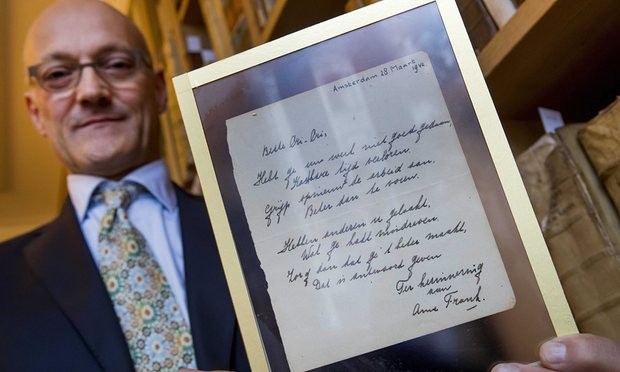 Amsterdam 28 Maart
1942
Beste Cri-Cri,
Hebt ge uw werk niet goed gedaan,
Kostbare tijd verloren.
Grijp opnieuw de arbeid aan,
Beter dan te voren.
Hebben anderen u gelaakt,
Wat ge hebt misdreven.
Zorg dan dat ge 't beter maakt,
Dat is antwoord geven
Ter herinnering
van
Anne Frank.